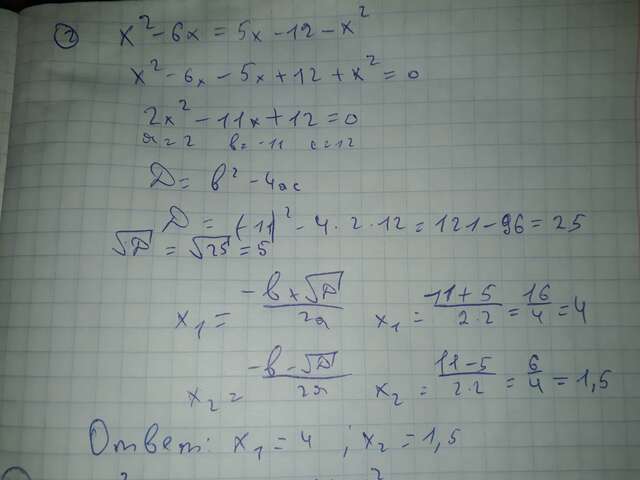 2) x² - 6x = 5x - 12 - x²
x² - 6x - 5x + 12 + x² = 0
2x² - 11x + 12 = 0
a = 2 b = -11 c = 12
D = b² - 4ac
D = (-11)² - 4 · 2 · 12 = 121 - 96 = 25
√D = √25 = 5
x₁ = (-b + √D)/2a x₁ = (11 + 5)/(2·2) = 16/4 = 4
x₂ = (-b - √D)/2a x₂ = (11 - 5)/(2·2) = 6/4 = 1,5
Ответ: x₁ = 4 ; x₂ = 1,5